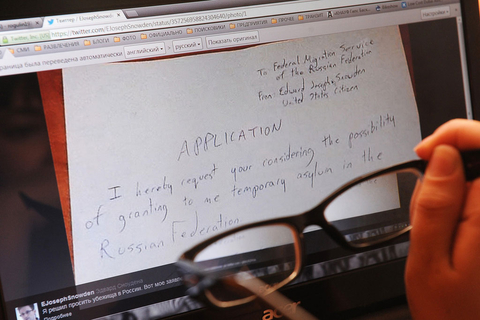 Твиттер
EJosephSnowden
https://twitter.com/EJosephSnowden/status/357256958824304640/photo/1
СМИ РАЗВЛЕЧЕНИЯ БЛОГИ ФОТО ОФИЦИАЛЬНО ПОИСКОВИКИ ПРЕДПРИЯТИЯ ПРОЧЕЕ
была переведена автоматически английский русский Показать оригинал Настройки
To Federal Migration Service
of the Russian Federation
From: Edward Joseph Snowden
United States Citizen
APPLICATION
I hereby request your considering the possibility
of granting to me temporary asylum in the
Russian Federation
EJosephSnowden
Я решил просить убежища в России. Вот мое
Подробнее
acer